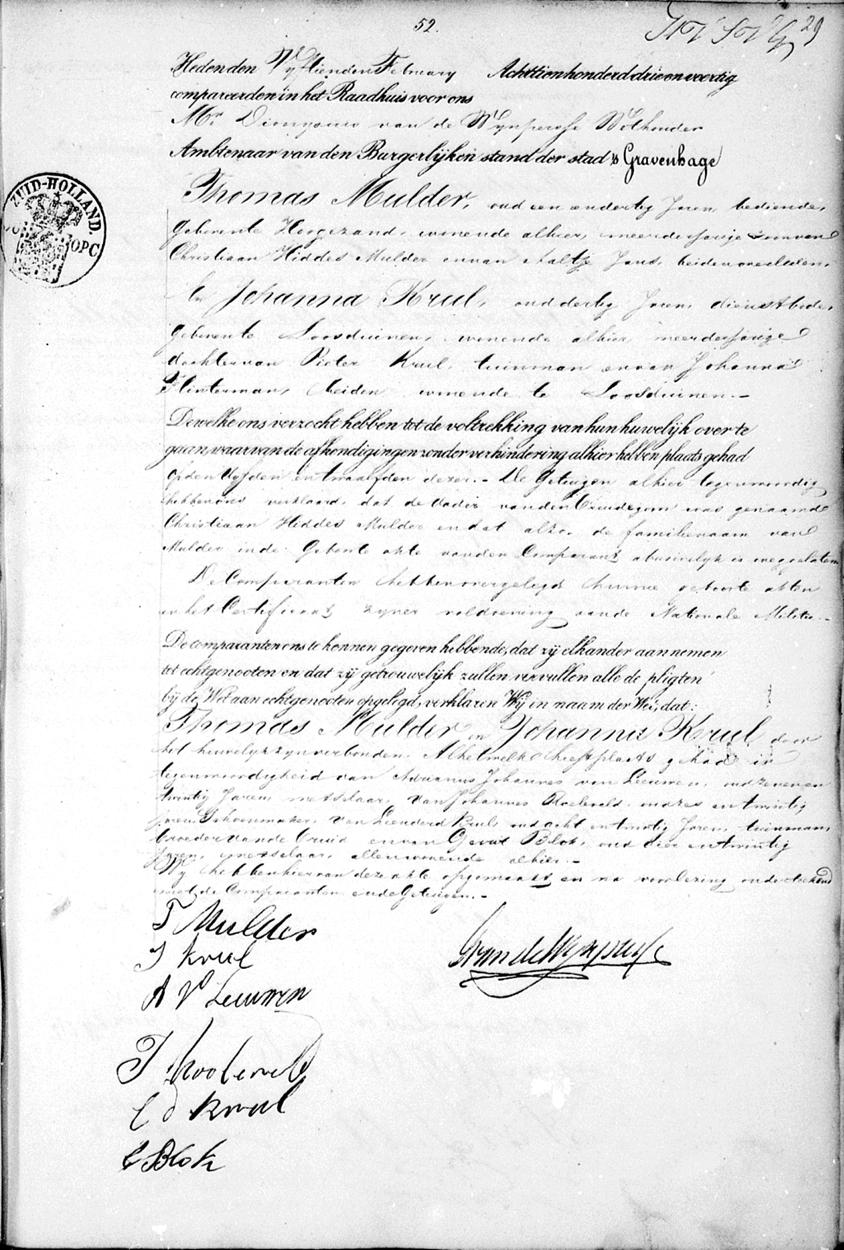 52.
29
Heden den Vyftienden February Achttienhonderd drie en veertig
compareerden in het Raadhuis voor ons
Mr. Dionysius van de Wynpersse Wethouder
Ambtenaar van den Burgerlijken stand der stad 's Gravenhage
ZUID-HOLLAND
OPC
Thomas Mulder, oud een en dertig Jaren, bediende,
Geboren te Hoogezand, wonende alhier, meerderjarige Zoon van
Christiaan Hiddes Mulder en van Aaltje Jans, beiden overleden,
En Johanna Krul, oud dertig Jaren, dienstbode,
Geboren te Loosduinen, wonende alhier, meerderjarige
dochter van Pieter Krul, tuinman en van Johanna
Flinterman, beiden wonende te Loosduinen.-
Dewelke ons verzocht hebben tot de voltrekking van hun huwelijk over te
gaan, waarvan de afkondigingen zonder verhindering alhier hebben plaats gehad
op den vyfden en twaalfden dezer.- De Getuigen alhier tegenwoordig
hebben ons verklaard, dat de Vader van den Bruidegom was genaamd
Christiaan Hiddes Mulder en dat alzo de familienaam van
Mulder in de Geboorte akte van den Comparant abusivelyk is weggelaten
De Comparanten hebben overgelegd hunne geboorte akten
en het Certificaat zyner voldoening aan de Nationale Militie.-
De comparanten ons te kennen gegeven hebbende, dat zij elkander aannemen
tot echtgenooten en dat zij getrouwelijk zullen vervullen alle de pligten
bij de Wet aan echtgenooten opgelegd, verklaren Wij in naam der Wet, dat:
Thomas Mulder en Johanna Krul door
het huwelyk zyn verbonden. Al hetwelk heeft plaats gehad in
tegenwoordigheid van Adrianus Johannes van Leeuwen, oud zeven en
twintig Jaren, metselaar, van Johannes Roeleveld, oud zes en twintig
Jaren, Schoenmaker, van Leendert Krul, oud acht en twintig Jaren, tuinman,
broeder van de Bruid en van Gerrit Blok, oud vier en twintig
Jaren, metselaar, allen wonende alhier.-
Wy hebben hiervan deze akte opgemaakt en na voorlezing onderteekend
met de Comparanten en de Getuigen.-
T Mulder
J Krul
A V Leeuwen
J Roeleveld
L d Krul
G Blok